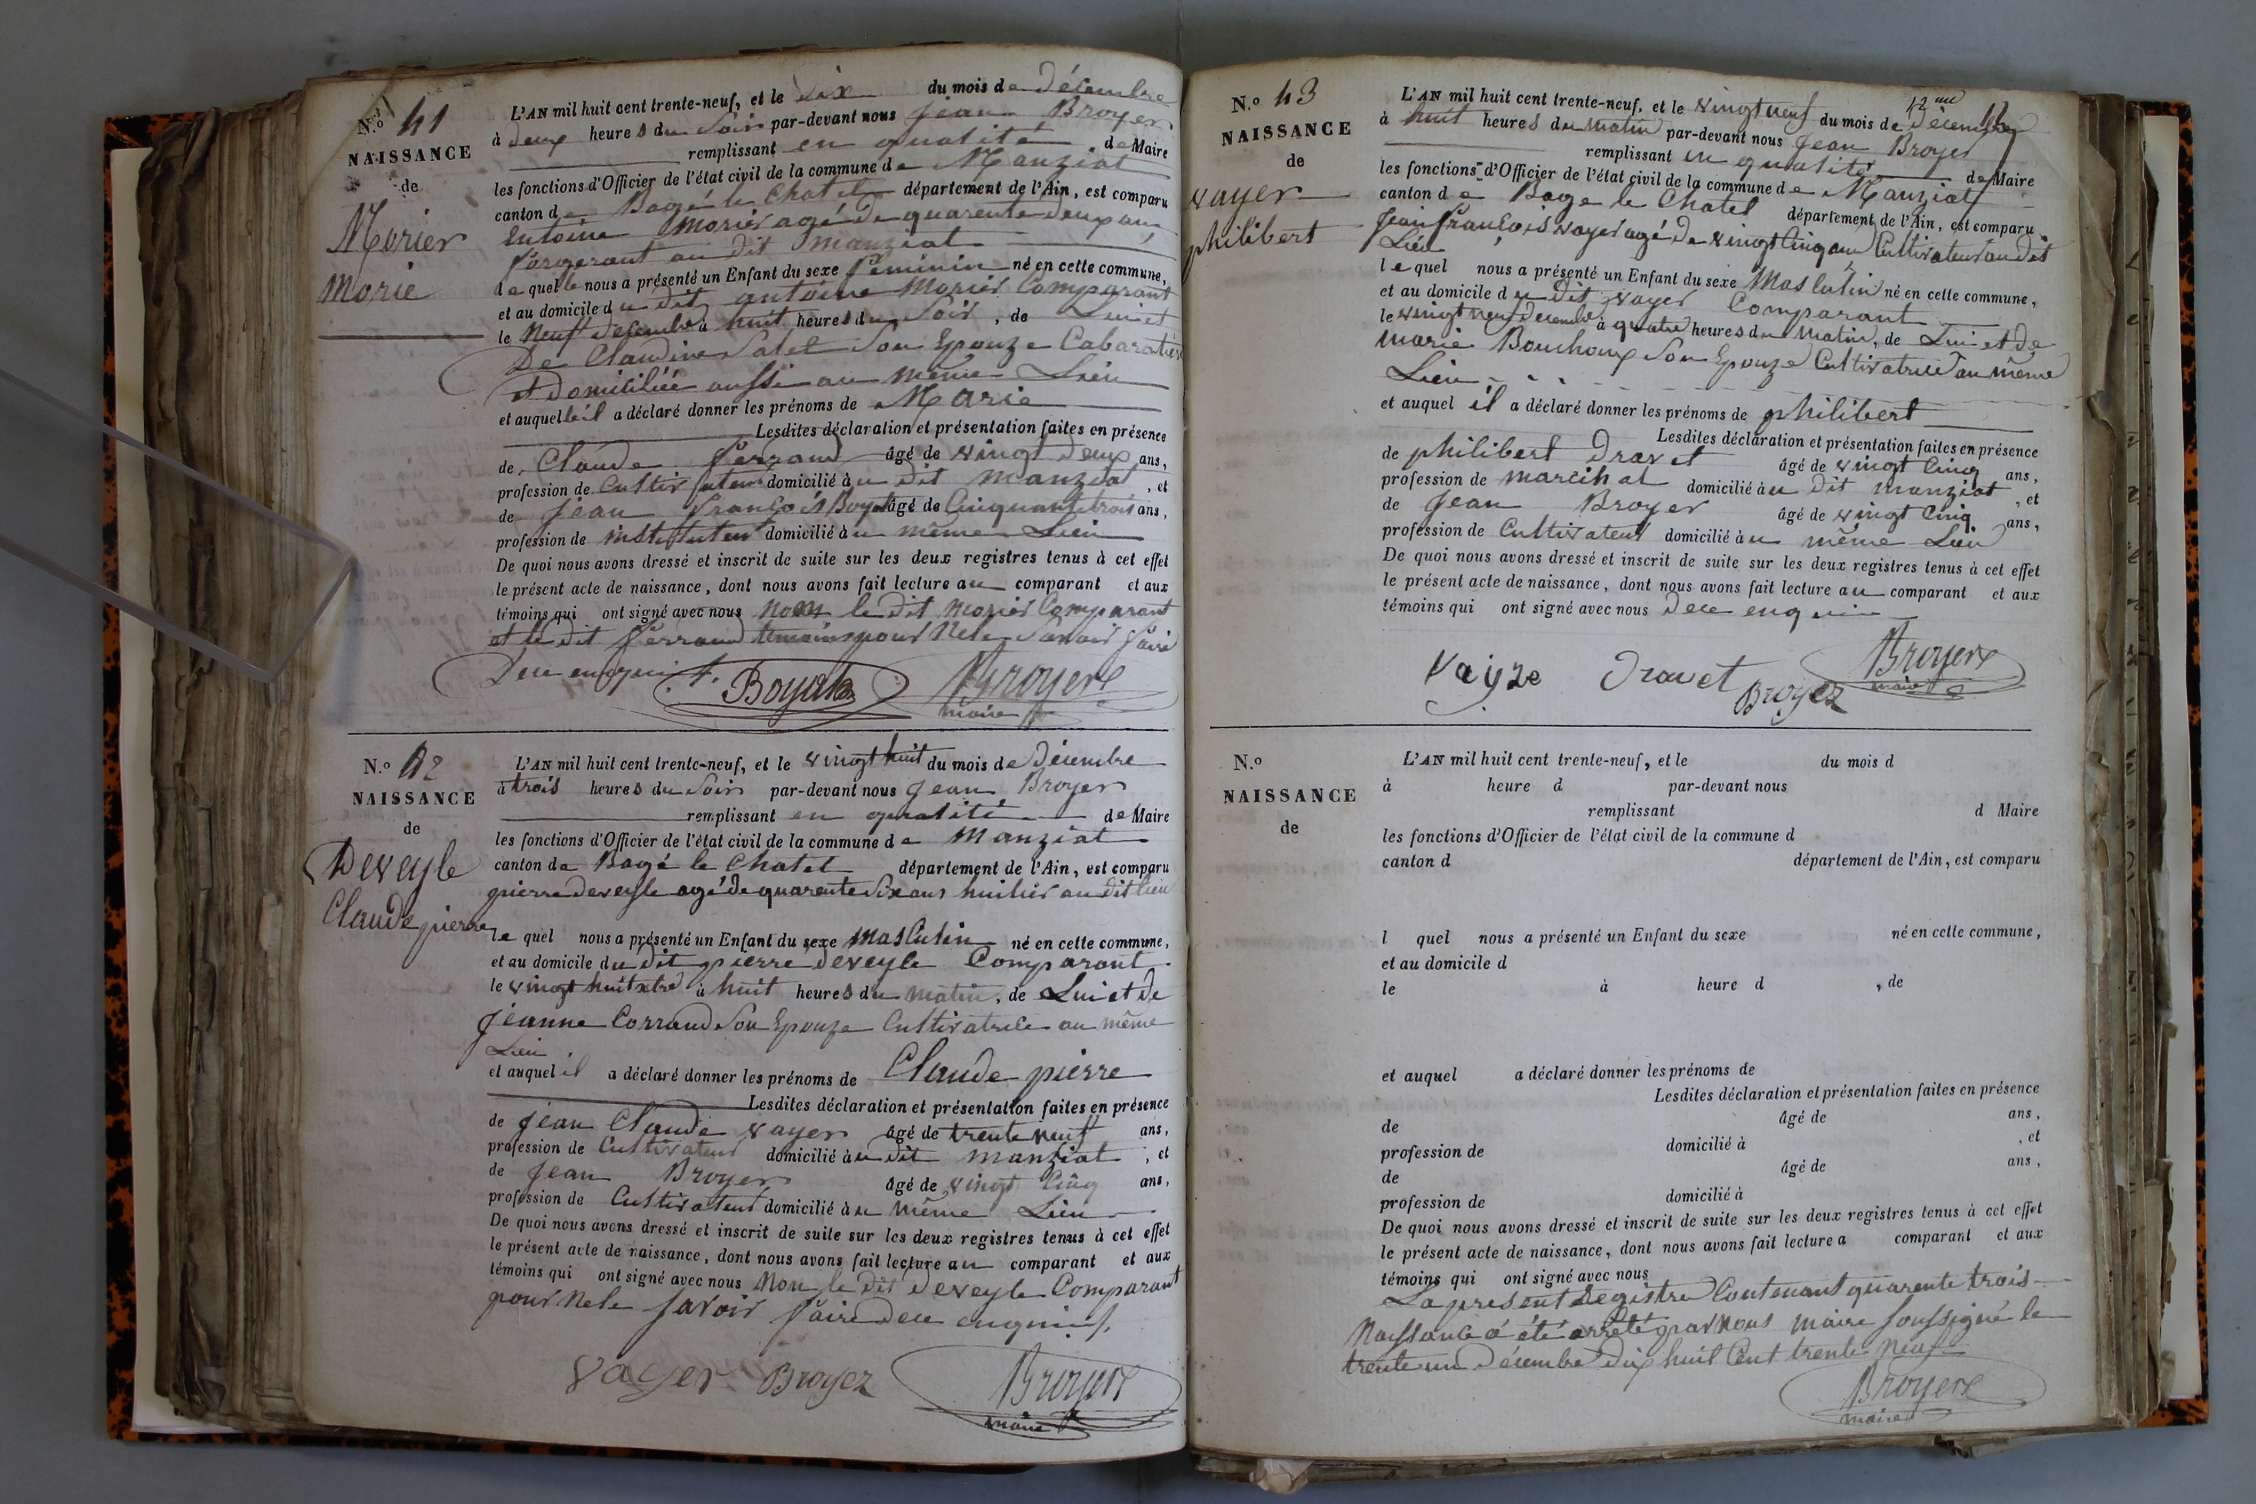 N.o 41
NAISSANCE
de
Morier
Marie
L'AN mil huit cent trente-neuf, et le dix du mois de Décembre
à deux heures du Soir par-devant nous Jean Broyer
remplissant en qualité de Maire
les fonctions d'Officier de l'état civil de la commune de Manziat
canton de Bagé le Chatel département de l'Ain, est comparu
antoine Morier agé de quarente deux ans
au dit manziat
laquelle nous a présenté un Enfant du sexe féminin né en cette commune,
et au domicile du dit antoine Morier Comparant
le Neuf décembre à huit heures du Soir, de Lui et
De Claudine Son Epouze Cabaratière
et Domiciliée aussi au même Lieu
et auquelle il a déclaré donner les prénoms de Marie
Lesdites déclaration et présentation faites en présence
de Claude ferrand âgé de vingt deux ans,
profession de Cultivateur domicilié au dit manziat, et
de jean françois Boyat âgé de Cinquante trois ans,
profession de instituteur domicilié au même Lieu
De quoi nous avons dressé et inscrit de suite sur les deux registres tenus à cet effet
le présent acte de naissance, dont nous avons fait lecture au comparant et aux
témoins qui ont signé avec nous non le dit morier Comparant
et le dit ferrand temoins pour Ne le Savoir faire
Dece enquis
Boyat Broyer
maire
N.o 42
NAISSANCE
de
Deveyle
Claude pierre
L'AN mil huit cent trente-neuf, et le vingt huit du mois de Décembre
à trois heures du Soir par-devant nous Jean Broyer
remplissant en qualité de Maire
les fonctions d'Officier de l'état civil de la commune de Manziat
canton de Bagé le Chatel département de l'Ain, est comparu
pierre deveyle agé de quarente Six ans huilier au dit lieu
le quel nous a présenté un Enfant du sexe Masculin né en cette commune,
et au domicile du dit pierre deveyle Comparant
le vingt huit xbre à huit heures du matin, de Lui et de
jeanne Corrand Son Epouze Cultivatrice au même
Lieu
et auquel il a déclaré donner les prénoms de Claude pierre
Lesdites déclaration et présentation faites en présence
de jean Claude vayer âgé de trente neuf ans,
profession de Cultivateur domicilié au dit manziat, et
de Jean Broyer âgé de vingt Cinq ans,
profession de Cultivateur domicilié au même Lieu
De quoi nous avons dressé et inscrit de suite sur les deux registres tenus à cet effet
le présent acte de naissance, dont nous avons fait lecture au comparant et aux
témoins qui ont signé avec nous Non le dit deveyle Comparant
pour Ne le savoir faire dece enquis
vayer Broyer Broyer
maire
N.o 43
NAISSANCE
de
vayer
philibert
12me
L'AN mil huit cent trente-neuf, et le vingt neuf du mois de décembre
à huit heures du matin par-devant nous Jean Broyer
remplissant en qualité de Maire
les fonctions d'Officier de l'état civil de la commune de Manziat
canton de Bage le Chatel département de l'Ain, est comparu
Jean françois vayer agé de vingt Cinq ans Cultivateur au dit
Lieu
le quel nous a présenté un Enfant du sexe Masculin né en cette commune,
et au domicile du dit vayer Comparant
le vingt neuf decembre à quatre heures du Matin, de Lui et de
marie Bouchoux Son Epouze Cultivatrice au même
Lieu
et auquel il a déclaré donner les prénoms de philibert
Lesdites déclaration et présentation faites en présence
de philibert Dravet âgé de vingt Cinq ans,
profession de marechal domicilié au dit manziat, et
de Jean Broyer âgé de vingt Cinq ans,
profession de Cultivateur domicilié au même Lieu
De quoi nous avons dressé et inscrit de suite sur les deux registres tenus à cet effet
le présent acte de naissance, dont nous avons fait lecture au comparant et aux
témoins qui ont signé avec nous dece enquis
Vayre Dravet Broyer Broyer
maire
N.o
NAISSANCE
de
L'AN mil huit cent trente-neuf, et le du mois d
à heure d par-devant nous
remplissant d Maire
les fonctions d'Officier de l'état civil de la commune d
canton d département de l'Ain, est comparu
l quel nous a présenté un Enfant du sexe né en cette commune,
et au domicile d
le à heure d , de
et auquel a déclaré donner les prénoms de
Lesdites déclaration et présentation faites en présence
de âgé de ans,
profession de domicilié à , et
de âgé de ans,
profession de domicilié à
De quoi nous avons dressé et inscrit de suite sur les deux registres tenus à cet effet
le présent acte de naissance, dont nous avons fait lecture a comparant et aux
témoins qui ont signé avec nous
Le present Registre Contenant quarente trois
Naissance a été arreté par Nous maire soussigné le
trente un décembre dix huit Cent trente Neuf
Broyer
maire